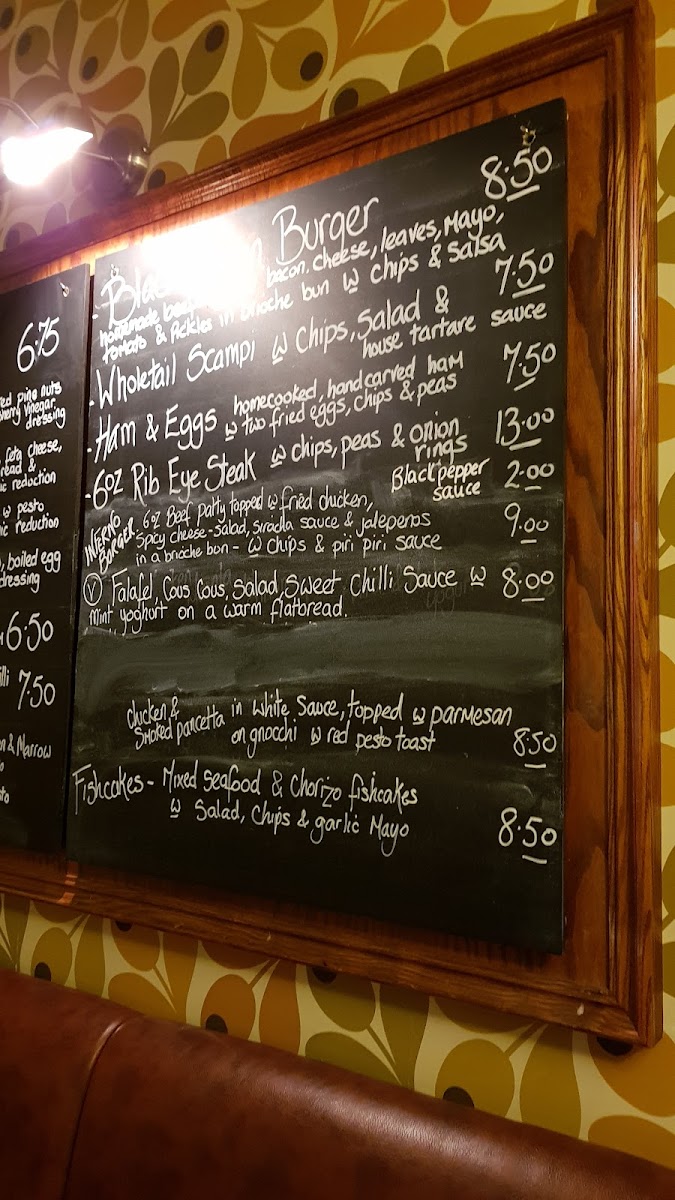 6.75
pine nuts
vinegar
dressing
feta cheese,
reduction
w pesto
reduction
, boiled egg
dressing
6.50
7.50
& Marrow
Burger 8.50
homemade bacon, cheese, leaves, Mayo,
tomato & Pickles in brioche bun w chips & salsa
- Wholetail Scampi w chips, Salad & 7.50
house tartare sauce
- Ham & Eggs homecooked, handcarved ham 7.50
w two fried eggs, chips & peas
- 6oz Rib Eye Steak w chips, peas & onion rings 13.00
Black pepper sauce 2.00
INFERNO BURGER 6oz Beef patty topped w fried chicken, 9.00
Spicy cheese-salad, siracha sauce & jalepenos
in a brioche bun - w chips & piri piri sauce
V Falafel, Cous Cous, Salad, Sweet Chilli Sauce w 8.00
Mint yoghurt on a warm flatbread.
Chicken & Smoked pancetta in White Sauce, topped w parmesan
on gnocchi w red pesto toast 8.50
Fishcakes - Mixed seafood & Chorizo fishcakes
w Salad, Chips & garlic Mayo 8.50